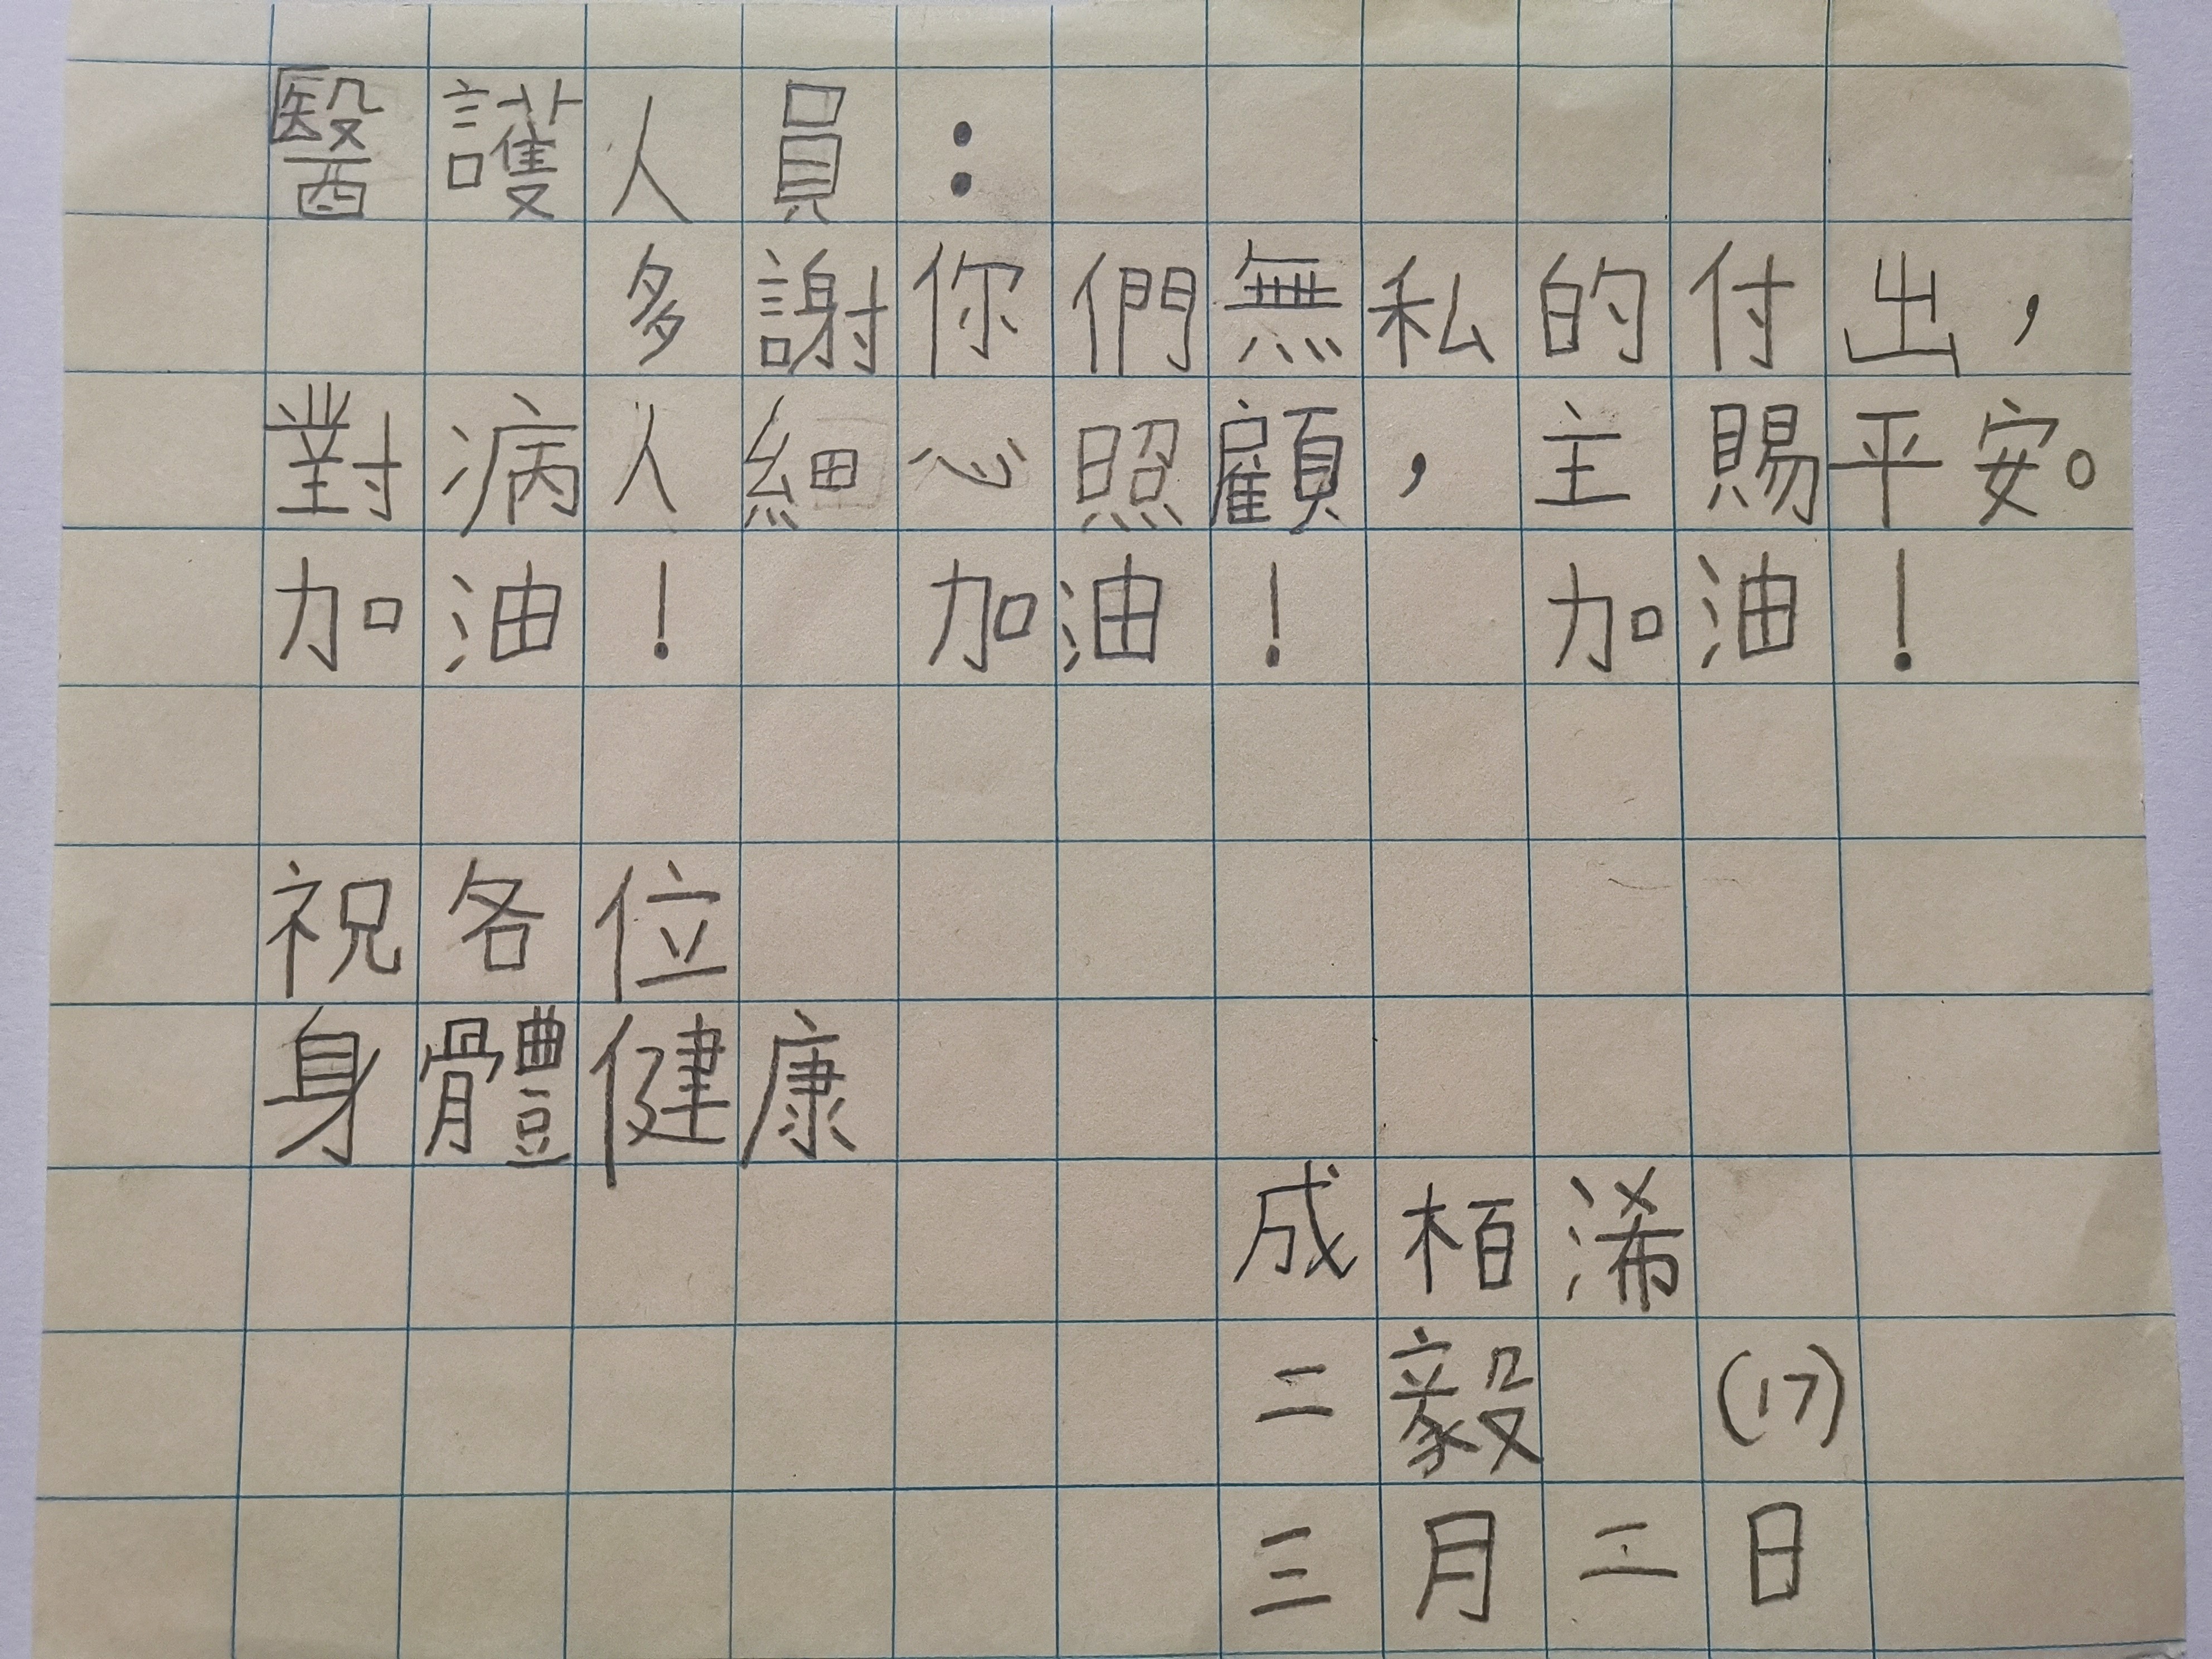 醫護人員：
多謝你們無私的付出，
對病人細心照顧，主賜平安。
加油！ 加油！ 加油！
祝各位
身體健康
成栢浠
二毅 (17)
三月二日